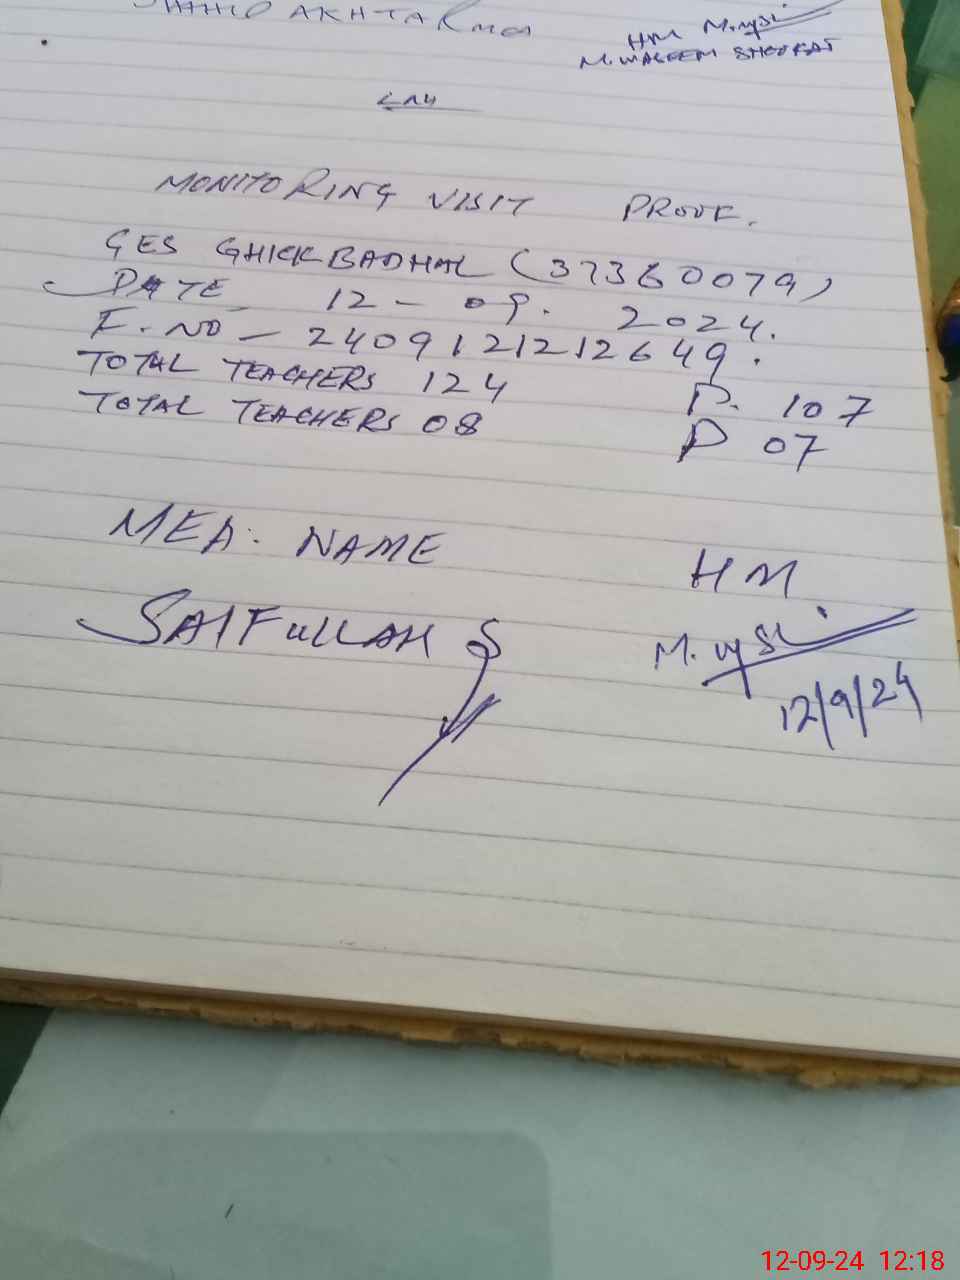 AKHTAR MEA
HM
M. WASEEM SHOUKAT
MONITORING VISIT PROOF.
GES GHICKBADHAL (37360079)
DATE 12 - 09. 2024.
F. NO - 2409121212649.
TOTAL TEACHERS 124 P. 107
TOTAL TEACHERS 08 P 07
MEA. NAME
HM.
SAIFULLAH
12/9/24
12-09-24 12:18